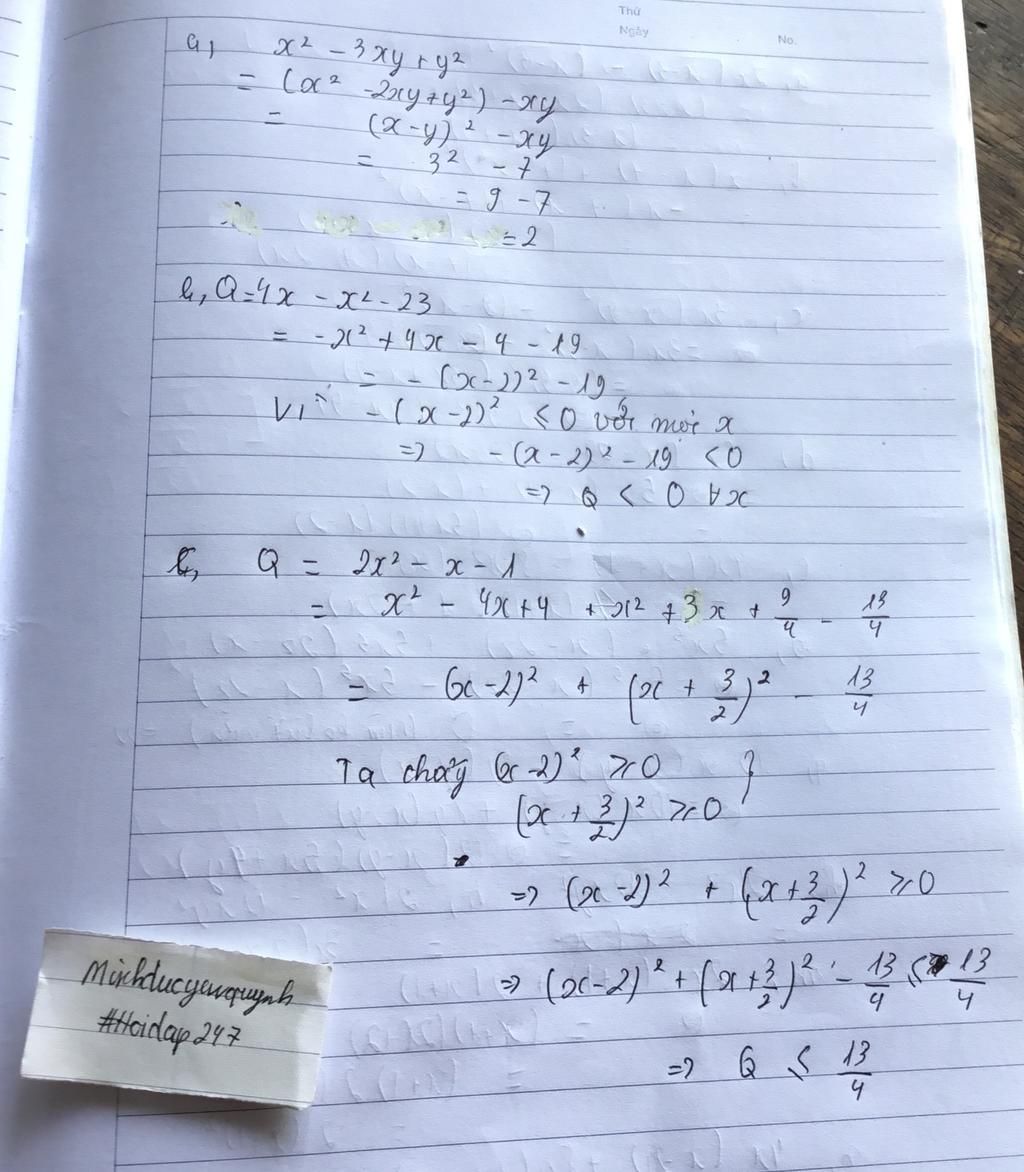 Thứ
Ngày
No.
a, x² - 3xy + y²
= (x² - 2xy + y²) - xy
= (x-y)² - xy
= 3² - 7
= 9 - 7
= 2
b, Q = 4x - x² - 23
= -x² + 4x - 4 - 19
= - (x-2)² - 19
Vì - (x-2)² ≤ 0 với mọi x
=> - (x-2)² - 19 < 0
=> Q < 0 ∀x
Q = 2x² - x - 1
= x² - 4x + 4 + x² + 3x + 9/4 - 13/4
= (x-2)² + (x + 3/2)² - 13/4
Ta thấy (x-2)² ≥ 0 }
(x + 3/2)² ≥ 0
=> (x-2)² + (x + 3/2)² ≥ 0
=> (x-2)² + (x + 3/2)² - 13/4 ≤ 13/4
=> Q ≤ 13/4
Minhducyeuquynh
#Hoidap247